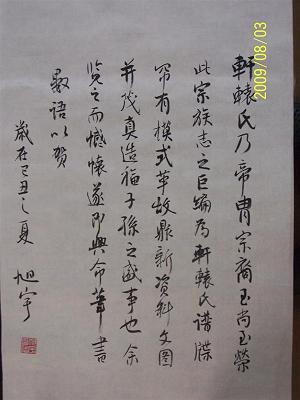 軒轅氏乃帝胄宗裔玉尚玉榮
此宗族志之巨編為軒轅氏譜牒
帘有模式革故鼎新資料文图
并茂真造福子孫之盛事也余
览之而憾懐遂即興命筆書
數語以贺
歲在己丑之夏 旭宇
2009/08/03